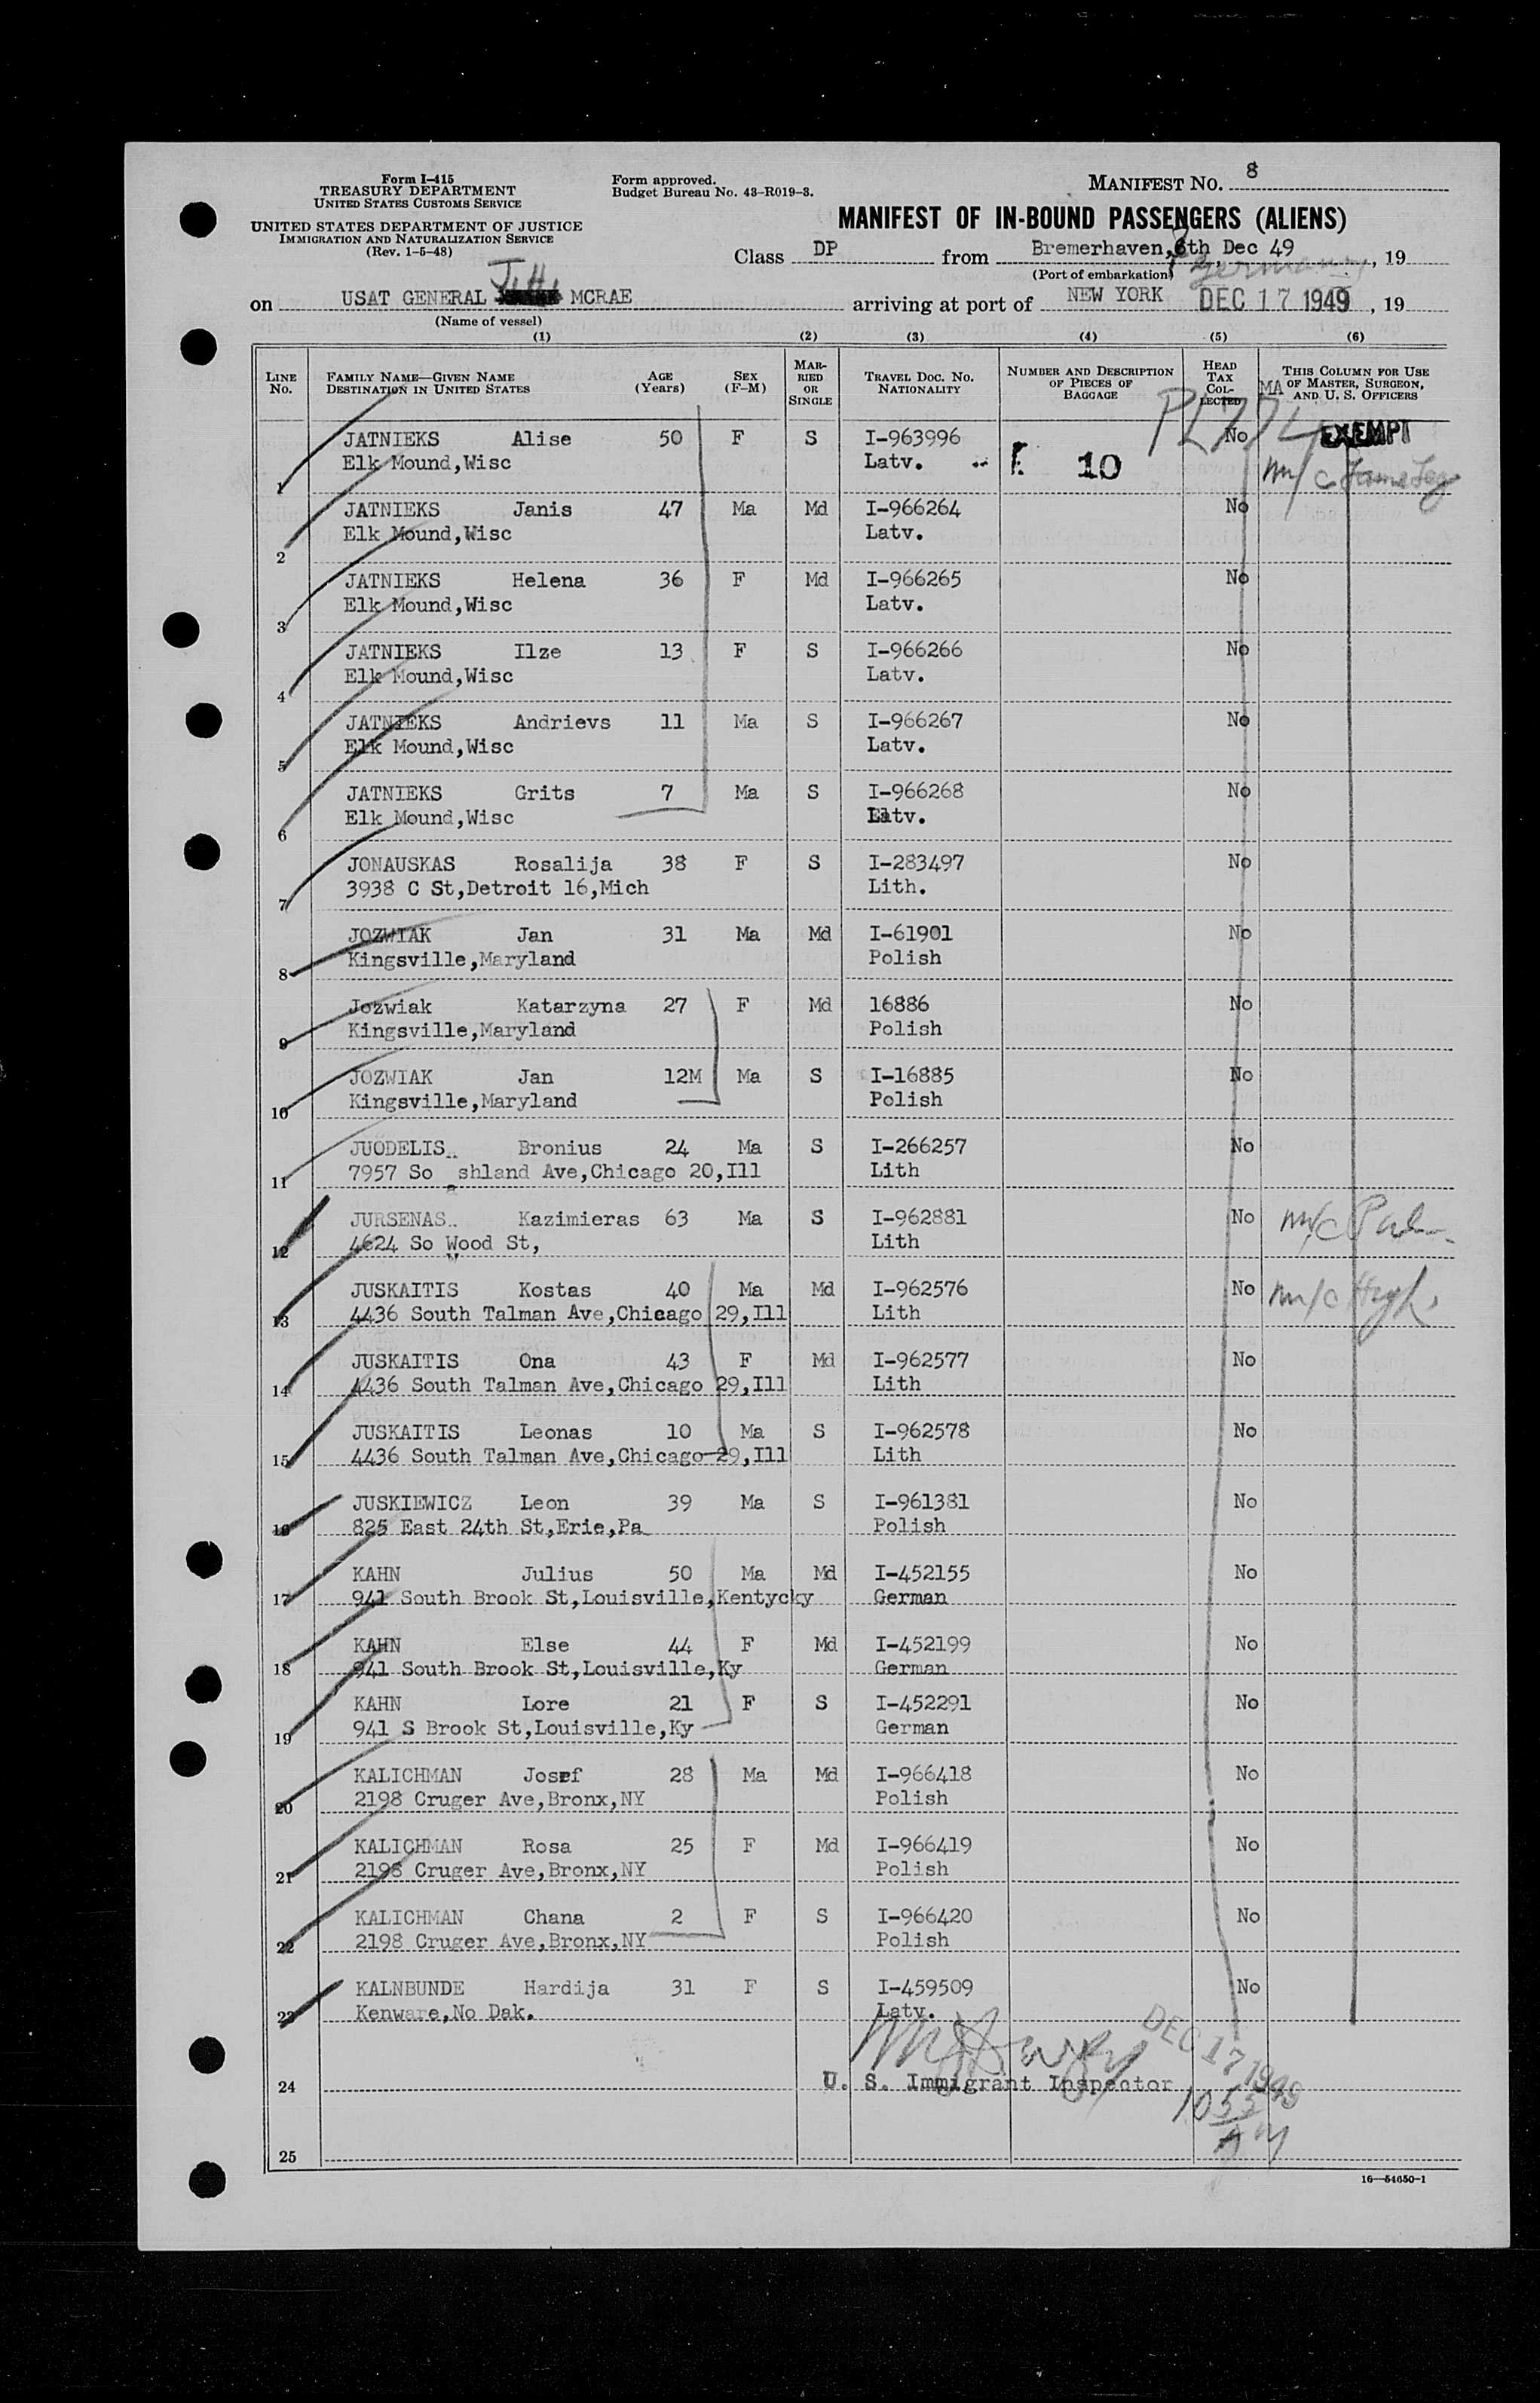 Form I-415
TREASURY DEPARTMENT
UNITED STATES CUSTOMS SERVICE
UNITED STATES DEPARTMENT OF JUSTICE
IMMIGRATION AND NATURALIZATION SERVICE
(Rev. 1-5-48)
Form approved.
Budget Bureau No. 43-R019-3.
MANIFEST No. 8
MANIFEST OF IN-BOUND PASSENGERS (ALIENS)
Class DP from Bremerhaven, th Dec 49, 19
(Port of embarkation) Germany
on USAT GENERAL J.H. MCRAE arriving at port of NEW YORK DEC 17 1949, 19
(Name of vessel)
(1) (2) (3) (4) (5) (6)
LINE No. FAMILY NAME—GIVEN NAME DESTINATION IN UNITED STATES AGE (Years) SEX (F-M) MARRIED OR SINGLE TRAVEL DOC. No. NATIONALITY NUMBER AND DESCRIPTION OF PIECES OF BAGGAGE HEAD TAX COLLECTED THIS COLUMN FOR USE OF MASTER, SURGEON, AND U. S. OFFICERS
MA
PL774
1 JATNIEKS Alise 50 F S I-963996 10 No EXEMPT
Elk Mound,Wisc Latv. m/c
2 JATNIEKS Janis 47 Ma Md I-966264 No
Elk Mound,Wisc Latv.
3 JATNIEKS Helena 36 F Md I-966265 No
Elk Mound,Wisc Latv.
4 JATNIEKS Ilze 13 F S I-966266 No
Elk Mound,Wisc Latv.
5 JATNIEKS Andrievs 11 Ma S I-966267 No
Elk Mound,Wisc Latv.
6 JATNIEKS Grits 7 Ma S I-966268 No
Elk Mound,Wisc Latv.
7 JONAUSKAS Rosalija 38 F S I-283497 No
3938 C St,Detroit 16,Mich Lith.
8 JOZWIAK Jan 31 Ma Md I-61901 No
Kingsville,Maryland Polish
9 Jozwiak Katarzyna 27 F Md 16886 No
Kingsville,Maryland Polish
10 JOZWIAK Jan 12M Ma S I-16885 No
Kingsville,Maryland Polish
11 JUODELIS Bronius 24 Ma S I-266257 No
7957 So ashland Ave,Chicago 20,Ill Lith
12 JURSENAS Kazimieras 63 Ma S I-962881 No m/c
4624 So Wood St, Lith
13 JUSKAITIS Kostas 40 Ma Md I-962576 No m/c
4436 South Talman Ave,Chicago 29,Ill Lith
14 JUSKAITIS Ona 43 F Md I-962577 No
4436 South Talman Ave,Chicago 29,Ill Lith
15 JUSKAITIS Leonas 10 Ma S I-962578 No
4436 South Talman Ave,Chicago 29,Ill Lith
16 JUSKIEWICZ Leon 39 Ma S I-961381 No
825 East 24th St,Erie,Pa Polish
17 KAHN Julius 50 Ma Md I-452155 No
941 South Brook St,Louisville,Kentycky German
18 KAHN Else 44 F Md I-452199 No
941 South Brook St,Louisville,Ky German
19 KAHN Lore 21 F S I-452291 No
941 S Brook St,Louisville,Ky German
20 KALICHMAN Josef 28 Ma Md I-966418 No
2198 Cruger Ave,Bronx,NY Polish
21 KALICHMAN Rosa 25 F Md I-966419 No
2198 Cruger Ave,Bronx,NY Polish
22 KALICHMAN Chana 2 F S I-966420 No
2198 Cruger Ave,Bronx,NY Polish
23 KALNBUNDE Hardija 31 F S I-459509 No
Kenware,No Dak. Latv.
DEC 17 1949
24 U. S. Immigrant Inspector
1055 AM
25
16—54650-1